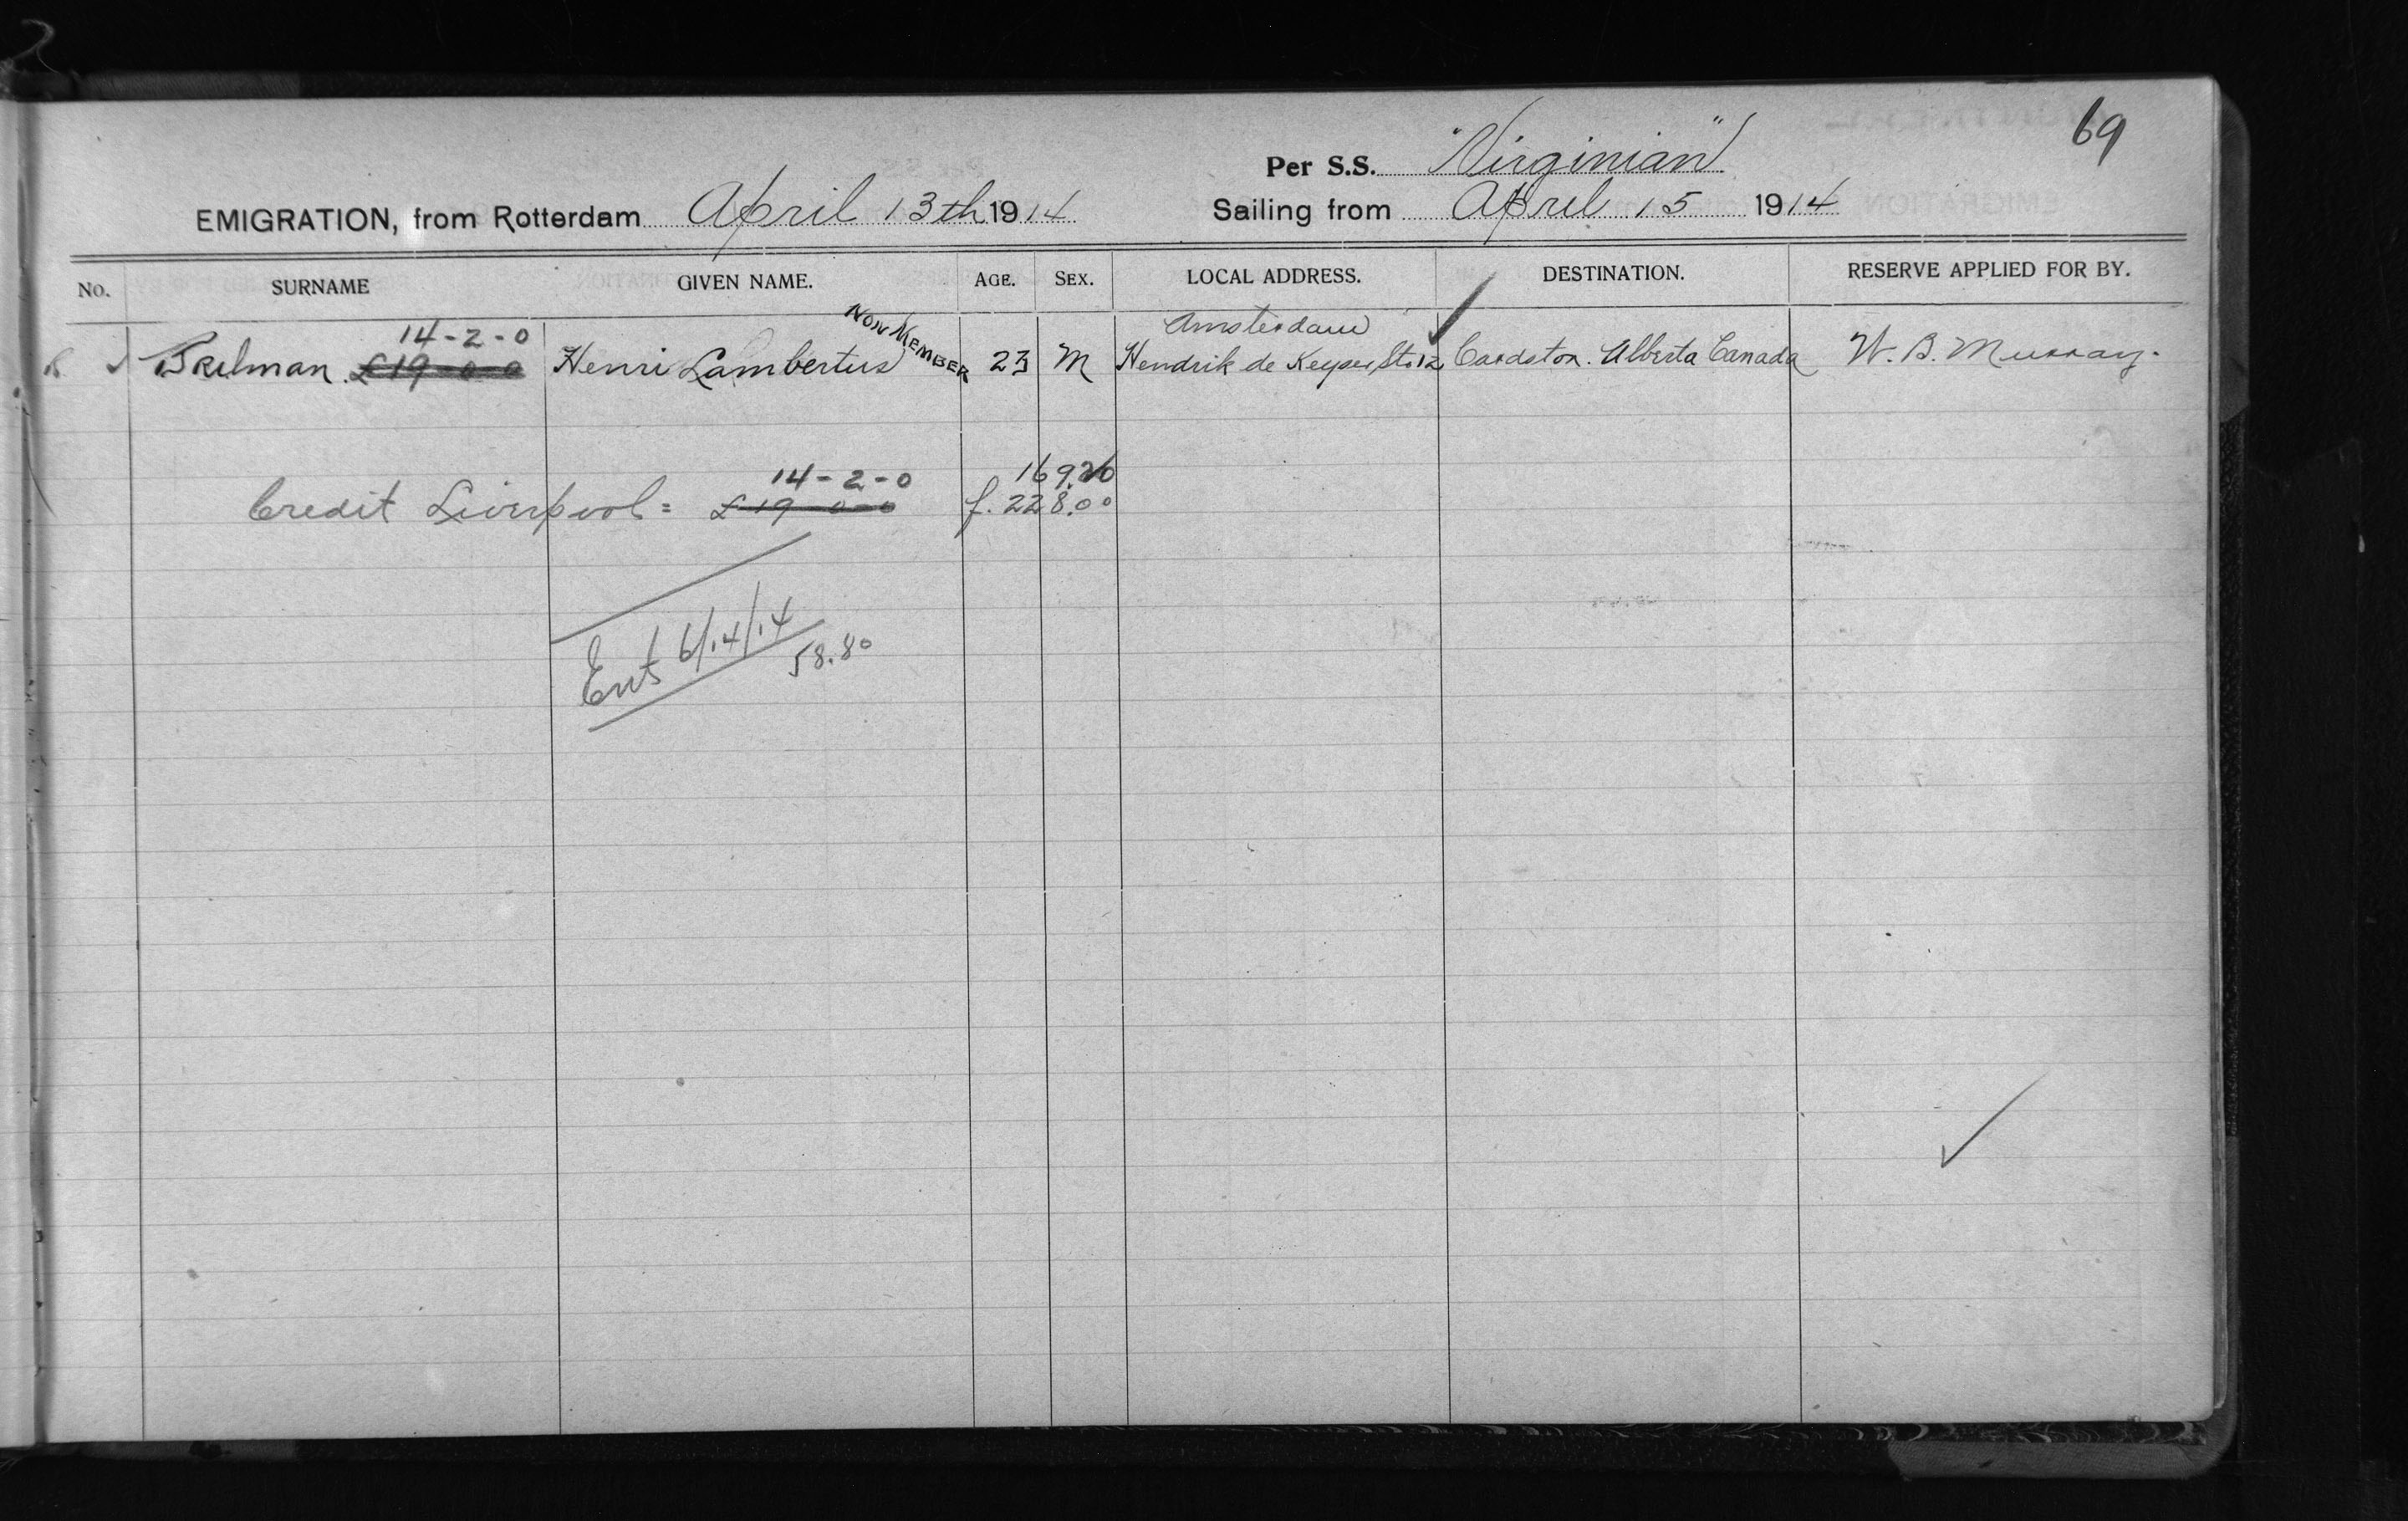 69
Per S.S. "Virginian"
EMIGRATION, from Rotterdam April 13th 1914 Sailing from April 15 1914
No. SURNAME GIVEN NAME. AGE. SEX. LOCAL ADDRESS. DESTINATION. RESERVE APPLIED FOR BY.
14-2-0 NON MEMBER Amsterdam
Brilman. £19-0-0 Henri Lambertus 23 M Hendrik de Keyser St. 12 Cardston. Alberta Canada W. B. Murray.
14-2-0 169.20
Credit Liverpool = £19-0-0 f. 228.00
Ent 6/14/14
58.80